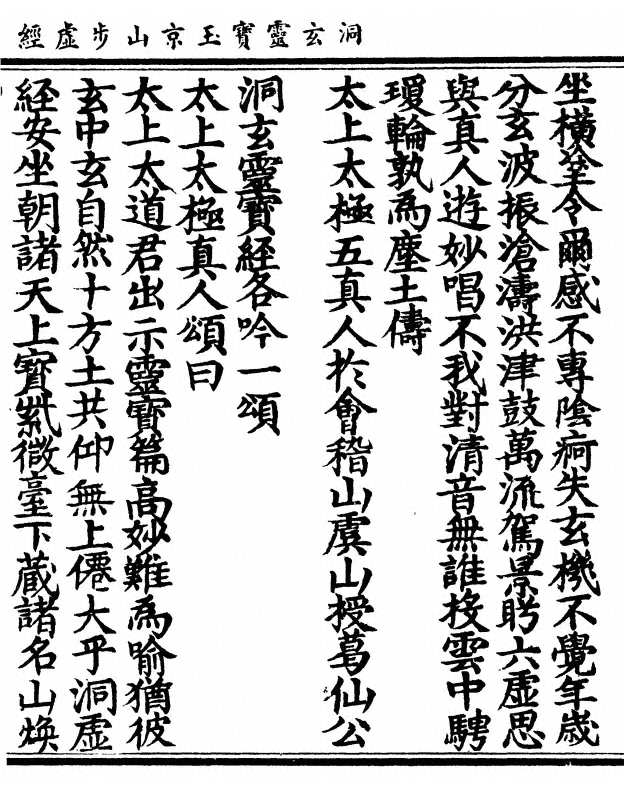 洞玄靈寶玉京山步虛經
坐橫㘴令爾感不專陰痾失玄機不覺年歲
分玄波振滄濤洪津鼓萬流駕景眄六虛思
與真人遊妙唱不我對清音無誰投雲中騁
瓊輪孰為塵土儔
太上太極五真人於會稽山虞山授葛仙公
洞玄靈寶經各吟一頌
太上太極真人頌曰
太上太道君出示靈寶篇高妙難為喻猶彼
玄中玄自然十方土共仰無上僊大乎洞虛
経安坐朝諸天上寶紫微臺下藏諸名山煥